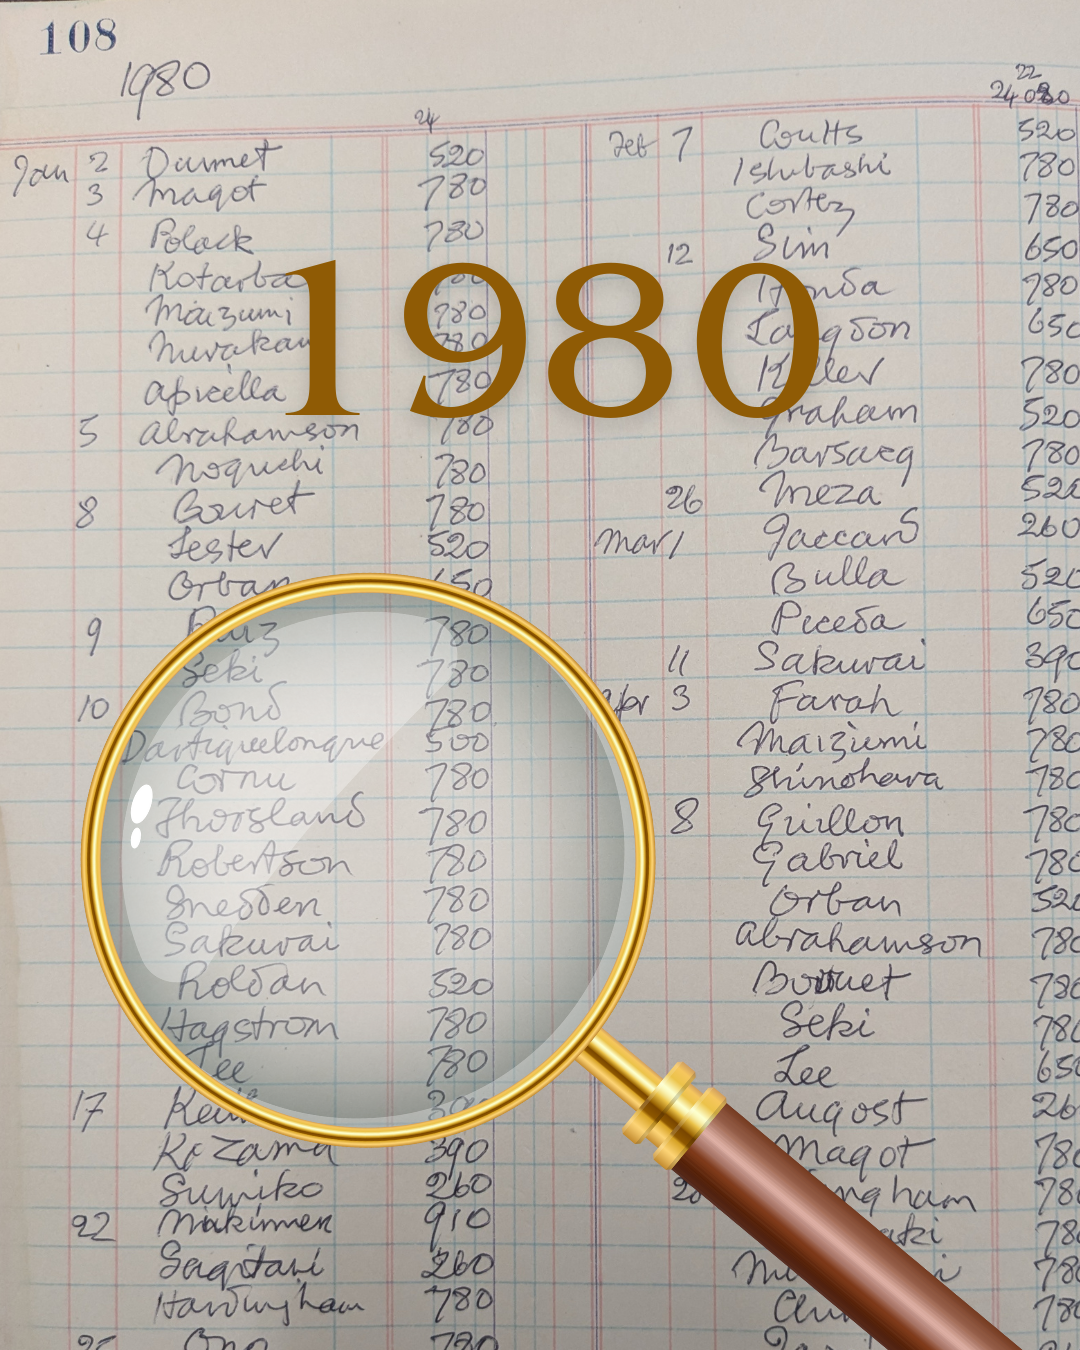 108
1980
24
Jan 2 Durmet 520
3 Magot 780
4 Polack 780
Kotarba 780
Maizumi 780
780
Apicella 780
5 Abrahamson 780
Noguchi 780
8 Bouret 780
Lester 520
Orban 650
9 Ruiz 780
Seki 780
10 Bond 780
Dartiguelongue 500
Cornu 780
Thorsland 780
Robertson 780
Snedden 780
Sakurai 780
Roldan 520
Hagstrom 780
Lee 780
17
Kozama 390
Sumiko 260
22 Makinnen 910
260
Hardingham 780
Ono 780
22
24
Feb 7 Coutts 520
Ishibashi 780
Cortez 780
12 Sim 650
780
Langdon 650
Keller 780
Graham 520
Barsacq 780
26 Meza 520
Mar 1 Jaccard 260
Bulla 520
Piceda 650
11 Sakurai 390
Apr 3 Farah 780
Maizumi 780
Shinohara 780
8 Guillon 780
Gabriel 780
Orban 520
Abrahamson 780
Bouret 780
Seki 780
Lee 650
August 260
Magot 780
780
780
780
780
1980